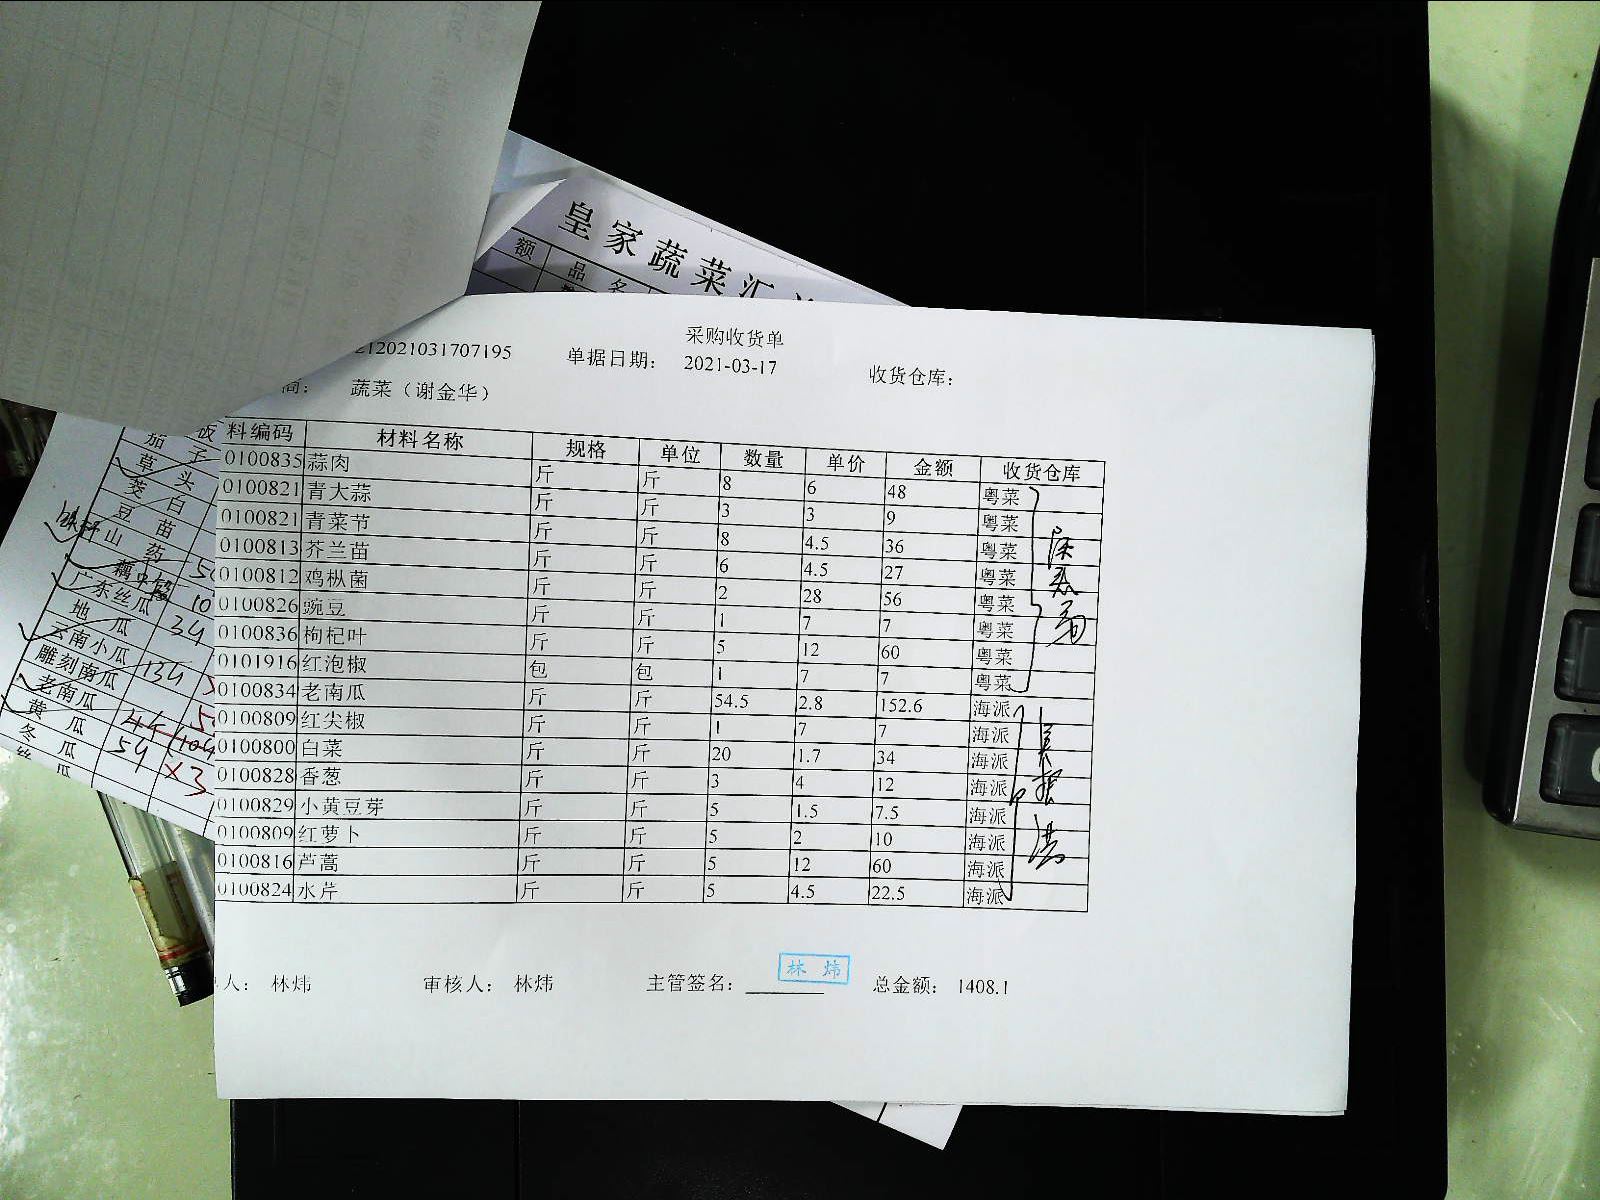 皇家蔬菜汇
额 品 名
采购收货单
212021031707195 单据日期： 2021-03-17 收货仓库：
商： 蔬菜（谢金华）
料编码 材料名称 规格 单位 数量 单价 金额 收货仓库
0100835 蒜肉 斤 斤 8 6 48 粤菜
0100821 青大蒜 斤 斤 3 3 9 粤菜
0100821 青菜节 斤 斤 8 4.5 36 粤菜
0100813 芥兰苗 斤 斤 6 4.5 27 粤菜
0100812 鸡枞菌 斤 斤 2 28 56 粤菜
0100826 豌豆 斤 斤 1 7 7 粤菜
0100836 枸杞叶 斤 斤 5 12 60 粤菜
0101916 红泡椒 包 包 1 7 7 粤菜
0100834 老南瓜 斤 斤 54.5 2.8 152.6 海派
0100809 红尖椒 斤 斤 1 7 7 海派
0100800 白菜 斤 斤 20 1.7 34 海派
0100828 香葱 斤 斤 3 4 12 海派
0100829 小黄豆芽 斤 斤 5 1.5 7.5 海派
0100809 红萝卜 斤 斤 5 2 10 海派
0100816 芦蒿 斤 斤 5 12 60 海派
0100824 水芹 斤 斤 5 4.5 22.5 海派
人： 林炜 审核人： 林炜 主管签名： 林炜 总金额： 1408.1
茄 子
草 头
茭 白
豆 苗
山 药
广东丝瓜
地 瓜
云南小瓜
雕刻南瓜
老南瓜
黄 瓜
冬 瓜